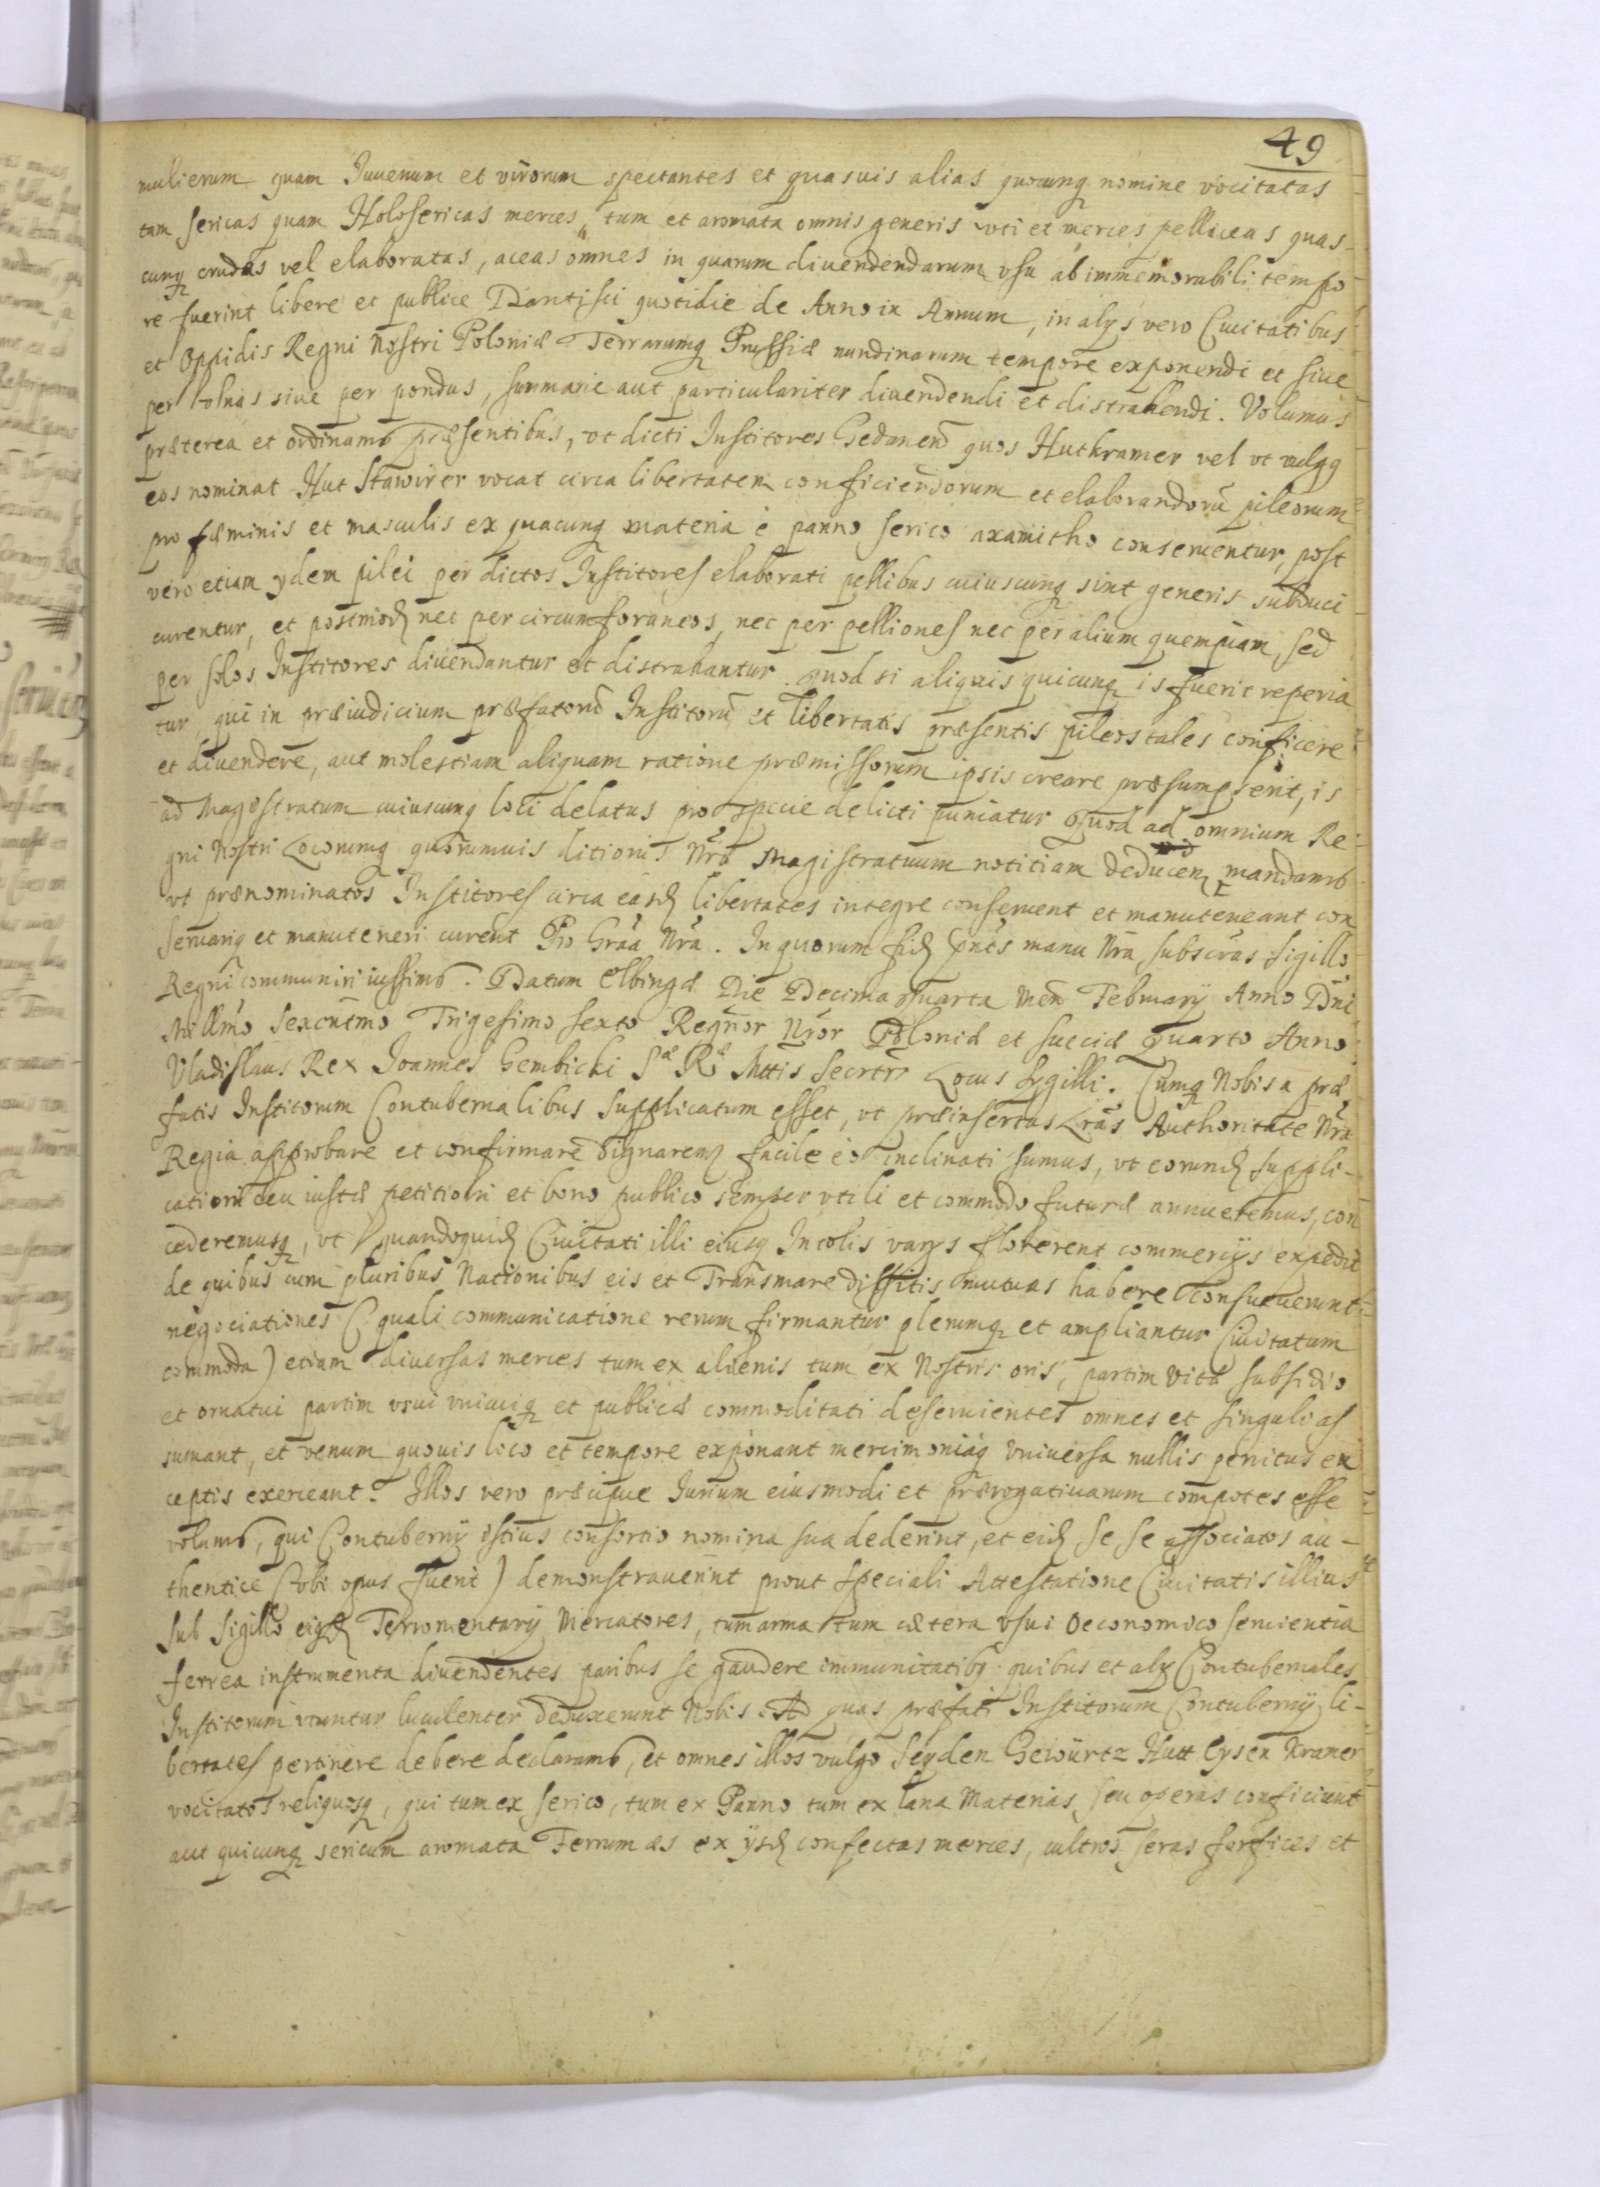 49
mulierum quam Juuenum et virorum spectantes et quasuis alias quocunq nomine vocitatas
tam sericas quam Holosericas merces, tum et aromata omnis generis vti et merces pelliceas quas-
cunq crudas vel elaboratas, ac eas omnes in quarum diuendendarum vsu ab immemorabili tempo
re fuerint libere et publice Dantisci quotidie de Anno in Annum, in alys vero Ciuitatibus
et Oppidis Regni Nostri Poloniæ Terrarumq Prussiæ nundinarum tempore exponendi et siue
per Volnas siue per pondus, summarie aut particulariter diuendendi et distrahendi. Volumus
præterea et ordinamb præsentibus, vt dicti Institores Gedanenn quos Hutkramer vel vt vulgq
eos nominat Hut Stawirer vocat circa libertatem conficiendorum et elaborandorū pileorum
pro fæminis et masculis ex quacunq materia è panno serico axamitho conseruentur, post
vero etiam ydem pilei per dictos Institores elaborati pellibus cuiuscunq sint generis subduci
curentur, et postmod nec per circumforaneos, nec per pelliones nec per alium quempiam, sed
per solos Institores diuendantur et distrahantur. quod si aliquis quicunq is fuerit reperia
tur qui in præiudicium præfatorū Institorū et libertatis præsentis pileos tales conficere
et diuendere, aut molestiam aliquam ratione præmissorum ipsis creare præsumpserit, is
ad Magistratum cuiuscunq loci delatus pro specie delicti puniatur Quod ad omnium Re-
gni Nostri Locorumq quorumuis ditionis Nrō Magistratuum notitiam deducen mandamb
vt prænominatos Institores circa easd libertates integre conseruent et manuteneant con
seruariq et manuteneri curent Pro Grāa Nrā. In quorum fid pntēs manu Nrā subscrās sigillo
Regni communiri iussimb. Datum Elbingæ Die Decima Quarta Men Februarÿ Anno Dnī
Millmō sexcntmō Trigesimo sexto Regnor Nrōr Poloniæ et sueciæ Quarto Anno
Vladislaus Rex Joannes Gembicki Sæ Ræ Mttis Secrtr Locus Sygilli. Cumq Nobis a præ,
fatis Institorum Contubernalibus supplicatum esset, vt præinsertas Lrās Authoritate Nrā
Regia approbare et confirmare dignarem facile eò inclinati sumus, vt eorund suppli-
cationi ceu iustæ petitioni et bono publico semper vtili et commodo futuræ annueremus, con
cederemusq, vt quandoquid Ciuitati illi eiusq Incolis varys florerent commercÿs expedit
de quibus cum pluribus Nationibus eis et Transmare dissitis mutuas habere consueuerunt
negociationes (quali communicatione rerum firmantur plerumq et ampliantur Ciuitatum
commoda) etiam diuersas merces tum ex alienis tum ex Nostris oris, partim vitæ subsidio
et ornatui partim vsui vnicuiq et publicæ commoditati deseruientes omnes et singuli as
sumant, et venum quouis loco et tempore exponant mercimoniaq vniuersa nullis penitus ex
ceptis exerceant. Illos vero præcipue Jurium eiusmodi et prærogatiuarum compotes esse
volumb, qui Contubernÿ istius consortio nomina sua dederint, et eid se se associatos au-
thentice (vbi opus fuerit) demonstrauerint prout speciali Attestatione Ciuitatis illius
sub sigillo eiusd Ferromentarÿ Mercatores, tum arma tum cætera vsui oeconomico seruientia
ferrea instrumenta diuendentes paribus se gaudere immunitatibq quibus et aly Contubernales
Institorum vtuntur luculenter deduxerunt Nobis. Ad quas præfati Institorum Contubernÿ li-
bertates pertinere debere declaramb, et omnes illos vulgo Seyden Gewürtz Hutt Eysen Kramer
vocitatos reliquosq, qui tum ex serico, tum ex Panno tum ex lana Materias, seu operas conficiunt
aut quicunq sericum aromata Ferrum æs ex ÿsd confectas merces, cultros seras forfices et